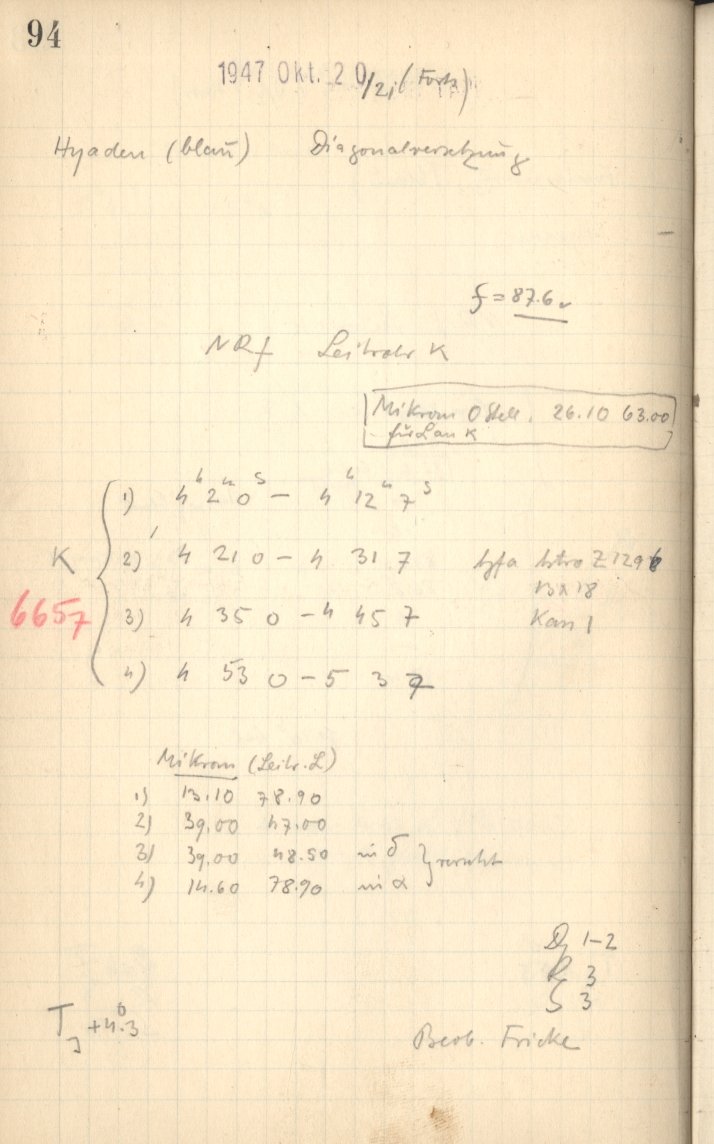 94
1947 Okt. 20/21 (Forts)
Hyaden (blau) Diagonalversetzung
f = 87.6
NRf Leitrohr K
Mikrom 0 Stell. 26.10 63.00
für L an K
1) 4h 2m 0s – 4h 12m 7s
K 2) 4 21 0 – 4 31 7 Agfa Astro Z 1296
13 x 18
6657 3) 4 35 0 – 4 45 7 Kas 1
4) 4 53 0 – 5 3 7
Mikrom (Leitr. L)
1) 13.10 78.90
2) 39.00 47.00
3) 39.00 48.50 in δ
4) 14.60 78.90 in α
1–2
R 3
S 3
T +4.°3
Beob. Fricke